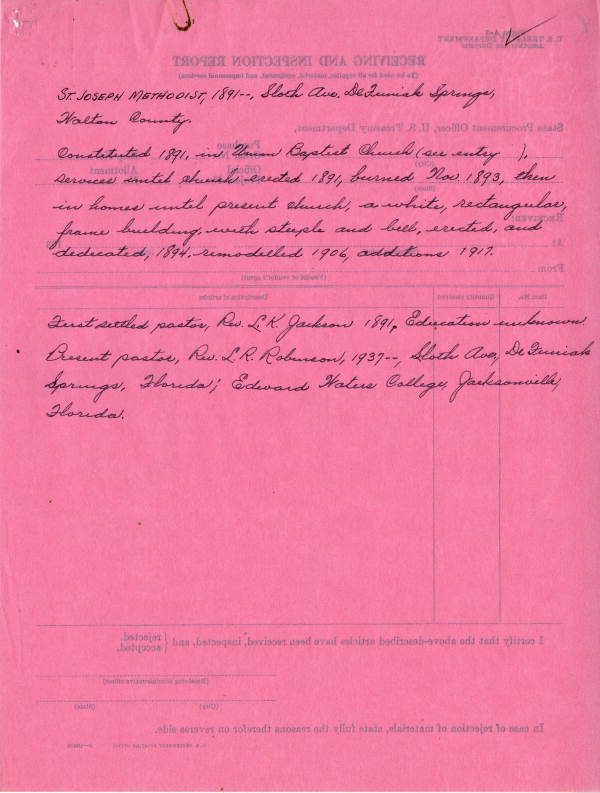 ST. JOSEPH METHODIST, 1891--, Sloth Ave. De Funiak Springs,
Walton County.
Constituted 1891, in Union Baptist Church (see entry ),
services until church erected 1891, burned Nov. 1893, then
in homes until present church, a white, rectangular,
frame building, with steeple and bell, erected, and
dedicated, 1894, remodelled 1906, additions 1917.
First settled pastor, Rev. L. K. Jackson 1891, Education unknown.
Present pastor, Rev. L. R. Robinson, 1937--, Sloth Ave, De Funiak
Springs, Florida; Edward Waters College, Jacksonville,
Florida.
U. S. TREASURY DEPARTMENT
RECEIVING AND INSPECTION REPORT
(To be used for all supplies, material, equipment, and impersonal services)
State Procurement Officer, U. S. Treasury Department,
Purchase
Official
Allotment
(City)
(State)
RECEIVED:
At
From
(Vendor or vendor's agent)
Item No.
Quantity received
Description of articles
I certify that the above-described articles have been received, inspected, and
rejected.
accepted.
(Receiving administrative officer)
(City)
(State)
In case of rejection of materials, state fully the reasons therefor on reverse side.
U. S. GOVERNMENT PRINTING OFFICE